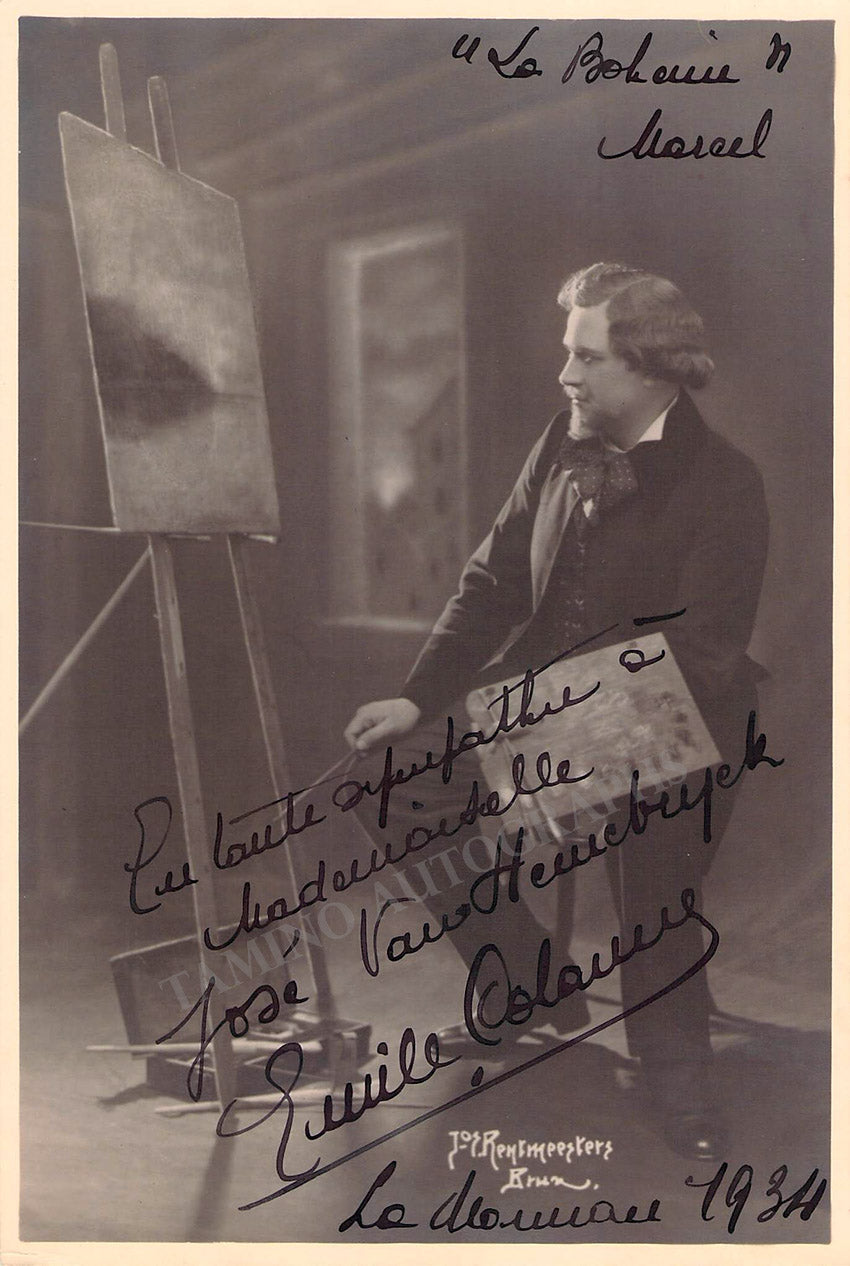 "La Bohème"
Marcel
En toute sympathie à
Mademoiselle
José Van Hemebryck
Emile Colonne
TAMINO AUTOGRAPHS
Jos. Rentmeesters
Brux.
La Monnaie 1934